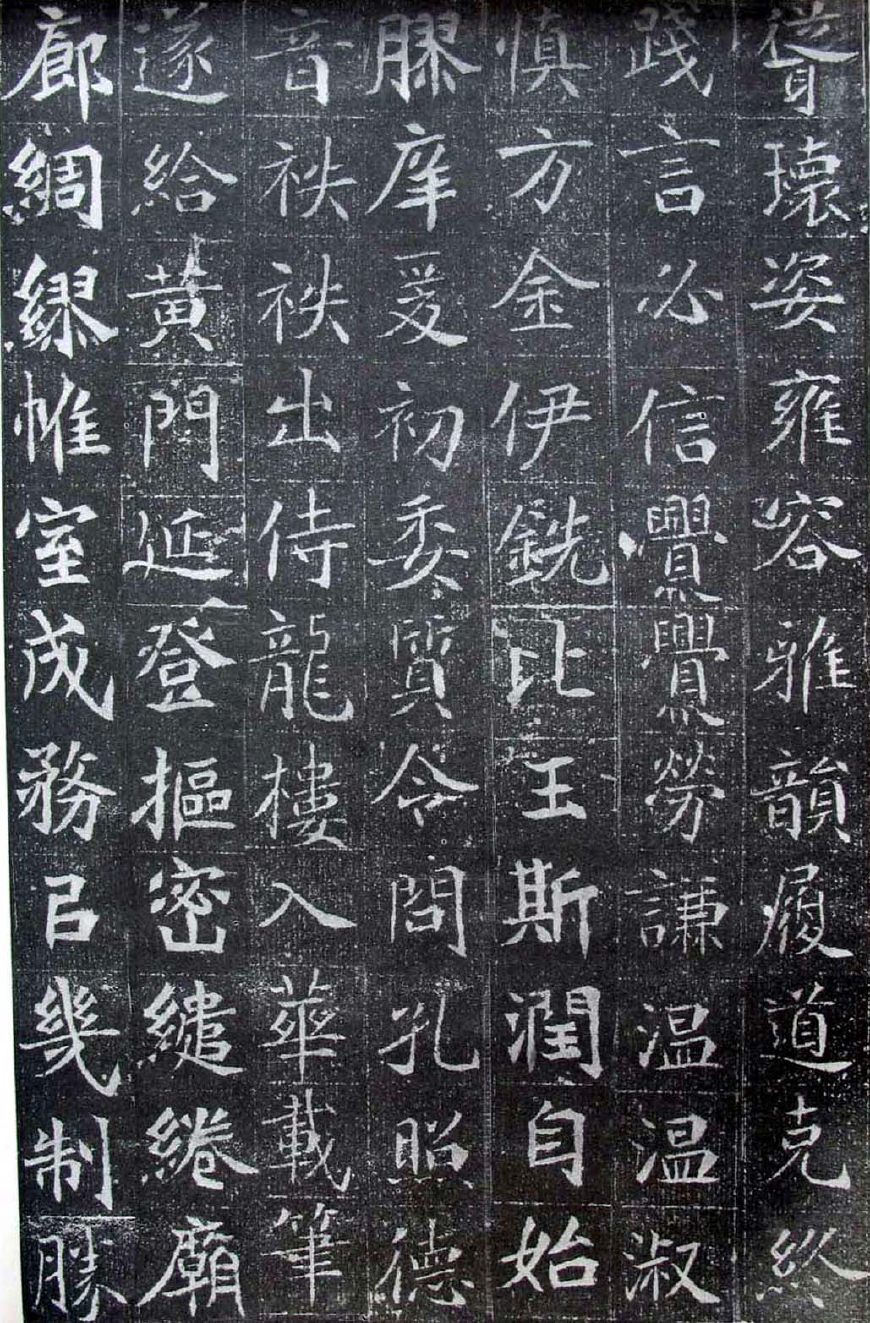 瓌姿雍容雅韻履道克終
踐言必信亹亹勞謙温温淑
慎方金伊銑比玉斯潤自始
膠庠爰初委質令問孔照德
音袟袟出侍龍樓入華載筆
遂給黄門延登樞密繾綣廟
廊綢繆帷室成務㠯幾制勝